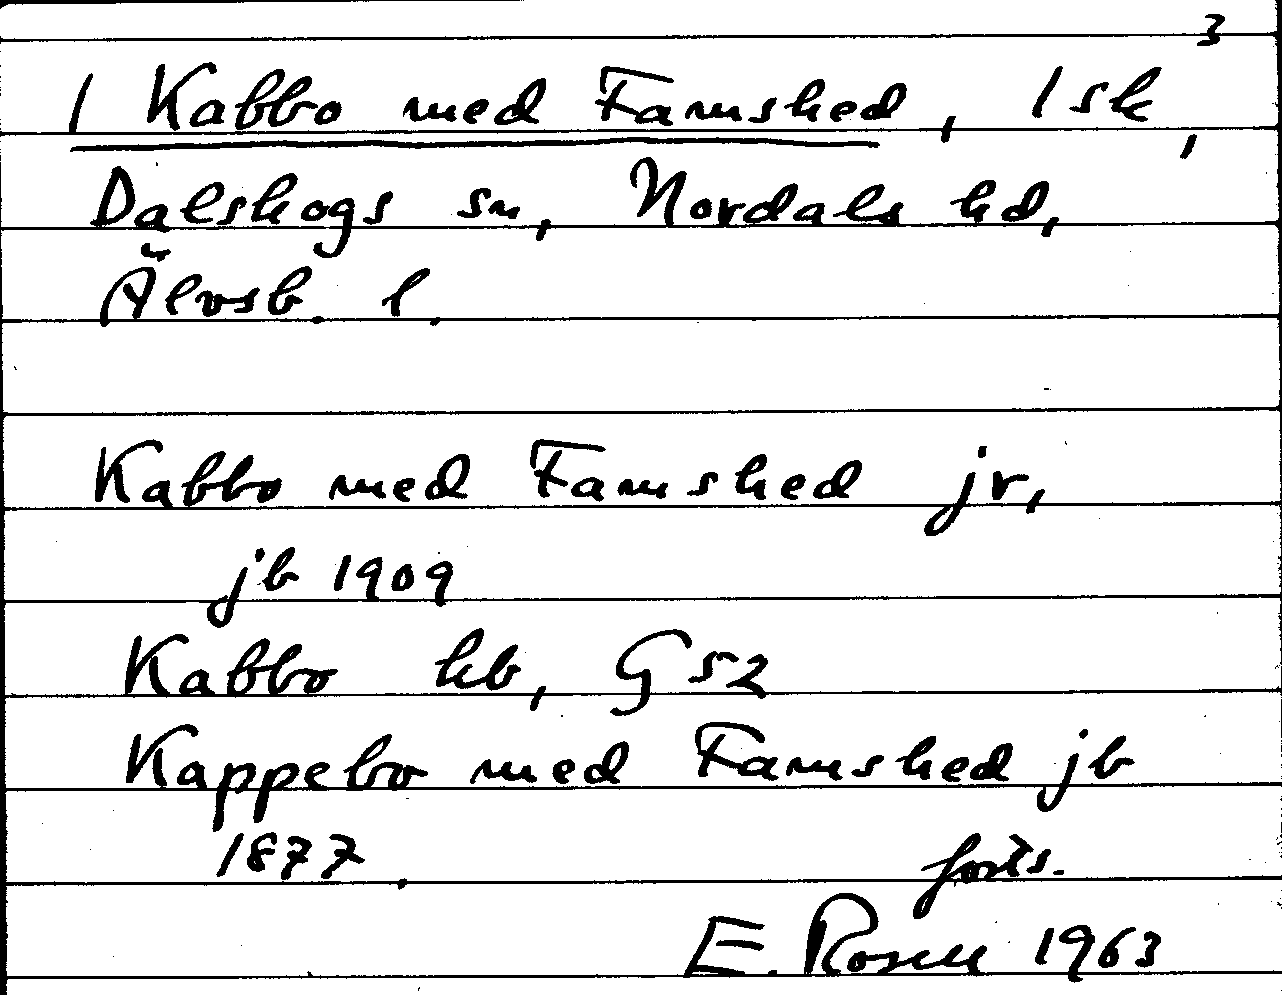 3
1 Kabbo med Famshed, 1 sk,
Dalskogs sn, Nordals hd,
Älvsb. l.
Kabbo med Famshed jr,
jb 1909
Kabbo kb, G 52
Kappebo med Famshed jb
1877.
forts.
E. Rosell 1963